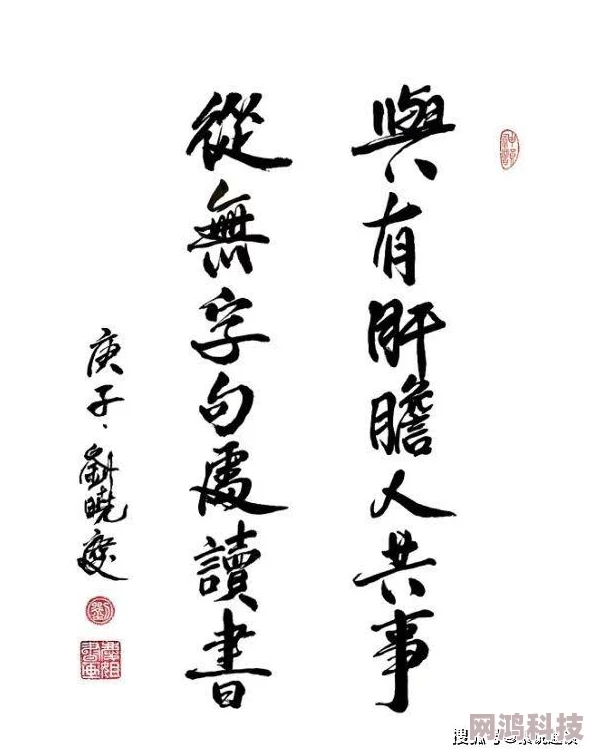 與有肝膽人共事
從無字句處讀書
庚子劉曉慶
劉
网鸿科技